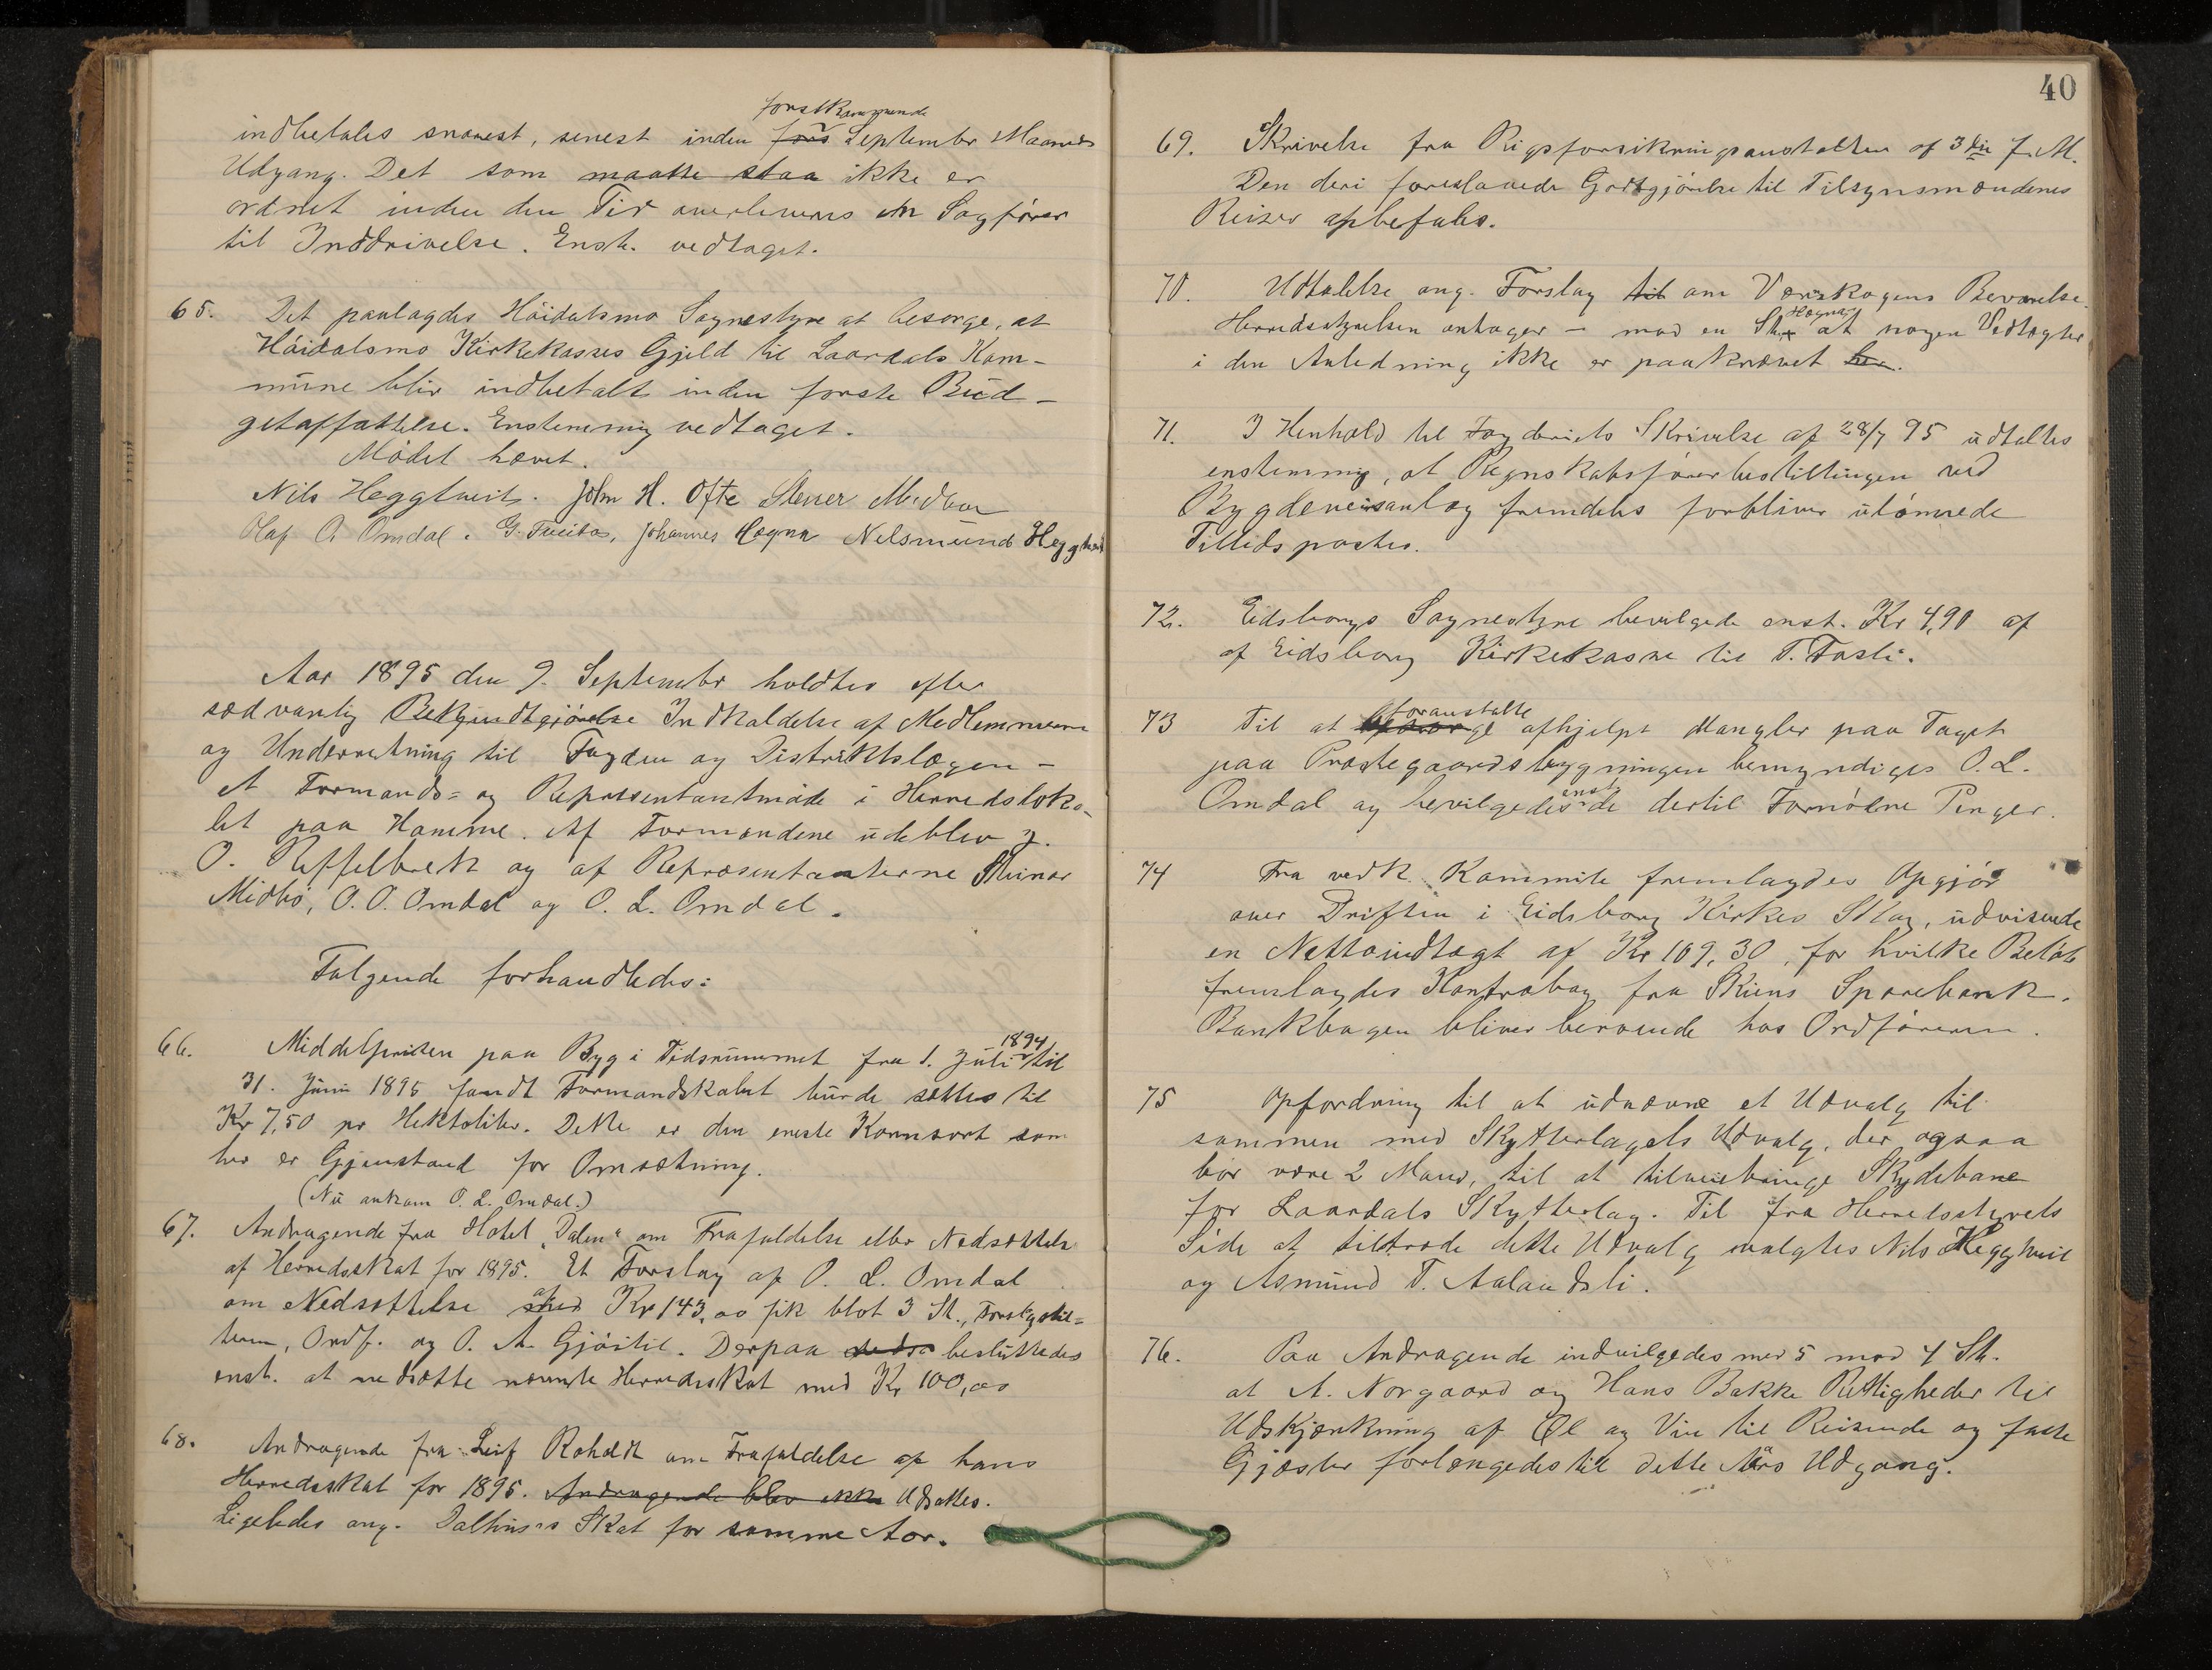 forstkommende
indbetales snarest, senest inden fors September Maaneds
Udgang. Det som maatte staa ikke er
ordnet inden den Tid overleveres en Sagfører
til Inddrivelse. Enst. vedtaget.
65. Det paalagdes Höidalsmo Sognestyre at besørge, at
Höidalsmo Kirkekasses Gjeld til Laardals Kom-
mune blir indbetalt inden første Bud-
getaffattelse. Enstemmig vedtaget.
Mödet hævet.
Nils Heggtveit. John H. Ofte Stener Midbøe
Olaf O. Omdal. G. Tveitos, Johannes Høgna Nelsmund Heggtveit
Aar 1895 den 9. September holdtes efter
sædvanlig Bekjendtgjørelse Indkaldelse af Medlemmerne
og Underretning til Fogden og Distriktslægen -
et Formands- og Repræsentantmøde i Herredsloka-
let paa Homme. Af Formændene udeblev J.
O. Riffelbæk og af Repræsentanterne Steinar
Midbö, O. O. Omdal og O. L. Omdal.
Følgende forhandledes:
66. Middelprisen paa Byg i Tidsrummet fra 1. Juli 1894 til
31. Juni 1895 fandt Formandskabet burde sættes til
Kr 7,50 pr Hektoliter. Dette er den eneste Kornsort som
her er Gjenstand for Omsætning.
(Nu ankom O. L. Omdal.)
67. Andragende fra Hotel "Dalen" om Frafaldelse eller Nedsættelse
af Herredsskat for 1895. Et Forslag af O. L. Omdal
om Nedsættelse af med Kr 143,00 fik blot 3 St., Forslagstil-
leren, Ordf. og O. A. Gjøstil. Derpaa nedsa besluttedes
enst. at nedsætte nævnte Herredsskat med Kr 100,00
68. Andragende fra Leif Roholdt om Frafaldelse af hans
Herredsskat for 1895. Andragende blev ikke Udsattes.
Ligeledes ang. Dalhus's Skat for samme Aar.
40
69. Skrivelse fra Rigsforsikringsanstalten af 3die f. M.
Den deri foreslaaede Godtgjörelse til Tilsynsmændenes
Reiser anbefales.
70. Udtalelse ang. Forslag til om Værskogens Bevarelse.
Herredsstyrelsen antager - mod en St. Høgna at nogen Vedtægter
i den Anledning ikke er paakrævet her.
71. I Henhold til Fogderiets Skrivelse af 28/7 95 udtaltes
enstemmig, at Regnskabsførerbestillingen ved
Bygdeveisanlæg fremdeles forbliver ulønnede
Tillidsposter.
72. Eidsborgs Sognestyre bevilgede enst. Kr 4,90 af
af Eidsborg Kirkekasse til T. Fosli.
73 Til at besørge foranstalte afhjelpt Mangler paa Taget
paa Præstegaardsbygningen bemyndiges O. L.
Omdal og bevilgedes enst. de dertil Fornödne Penger.
74 Fra vedk. Kommite fremlagdes Opgjör
over Driften i Eidsborg Kirkes Skog, udvisende
en Nettoindtægt af Kr 109,30, for hvilke Beløb
fremlagdes Kontrabog fra Skiens Sparebank.
Bankbogen bliver beroende hos Ordføreren.
75 Opfordring til at udnævne et Udvalg til
sammen med Skytterlagets Udvalg, der ogsaa
bør være 2 Mand, til at tilveiebringe Skydebane
for Laardals Skytterlag. Til fra Herredsstyrets
Side at tiltræde dette Udvalg valgtes Nils Heggtveit
og Asmund T. Aalandsli.
76. Paa Andragende indvilgedes med 5 mod 4 St.
at A. Norgaard og Hans Bakke Rettigheder til
Udskjænkning af Øl og Vin til Reisende og faste
Gjæster forlængedes til dette Aars Udgang.